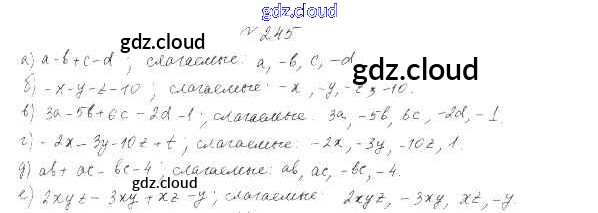 gdz.cloud
№ 245
gdz.cloud
а) a-b+c-d ; слагаемые: a, -b, c, -d
gdz.cloud
б) -x-y-z-10 ; слагаемые: -x, -y, -z, -10.
в) 3a-5b+6c-2d-1; слагаемые: 3a, -5b, 6c, -2d, -1
gdz.cloud
г) -2x-3y-10z+t; слагаемые: -2x, -3y, -10z, 1.
д) ab+ac-bc-4; слагаемые: ab, ac, -bc, -4.
gdz.cloud
е) 2xyz-3xy+xz-y; слагаемые: 2xyz, -3xy, xz, -y.
gdz.cloud